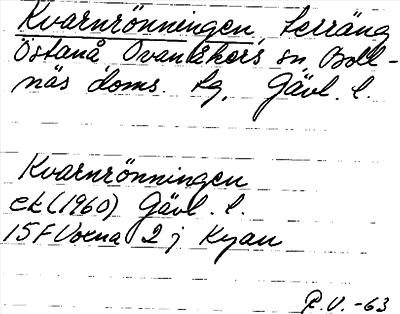 Kvarnrönningen, terräng
Östanå, Ovanåkers sn, Boll-
näs doms. tg, Gävl. l.
Kvarnrönningen
ek (1960) Gävl. l.
15 F Voxna 2 j Kyan
R.V. -63